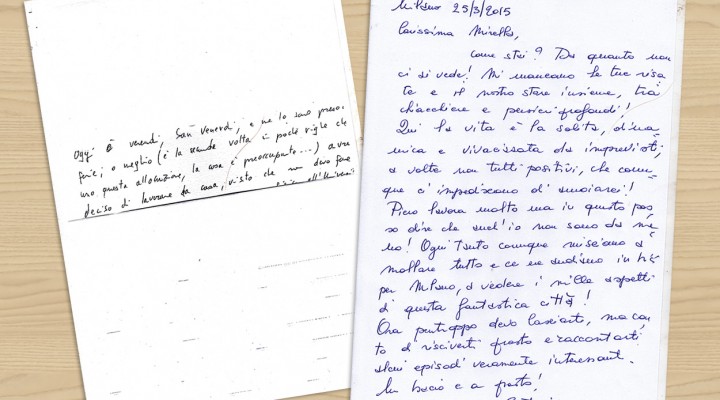 Oggi è venerdì, San Venerdì, e me lo sono preso.
ferie, o meglio (è la seconda volta in poche righe che
uso questa allocuzione, la cosa è preoccupante...) avevo
deciso di lavorare da casa, visto che non devo fare
Milano 25/3/2015
Carissima Mirella,
come stai? Da quanto non
ci si vede! Mi mancano le tue risa-
te e il nostro stare insieme, tra
chiacchiere e pensieri profondi!
Qui la vita è la solita, dina-
mica e vivacizzata da imprevisti,
a volte non tutti positivi, che comun-
que ci impediscono di annoiarci!
Piero lavora molto ma in questo pos-
so dire che anch'io non sono da me-
no! Ogni tanto comunque riusciamo a
mollare tutto e ce ne andiamo in bici
per Milano, a vedere i mille aspetti
di questa fantastica città!
Ora purtroppo devo lasciarti, ma con-
to di riscriverti presto e raccontarti
alcuni episodi veramente interessanti.
Un bacio e a presto!